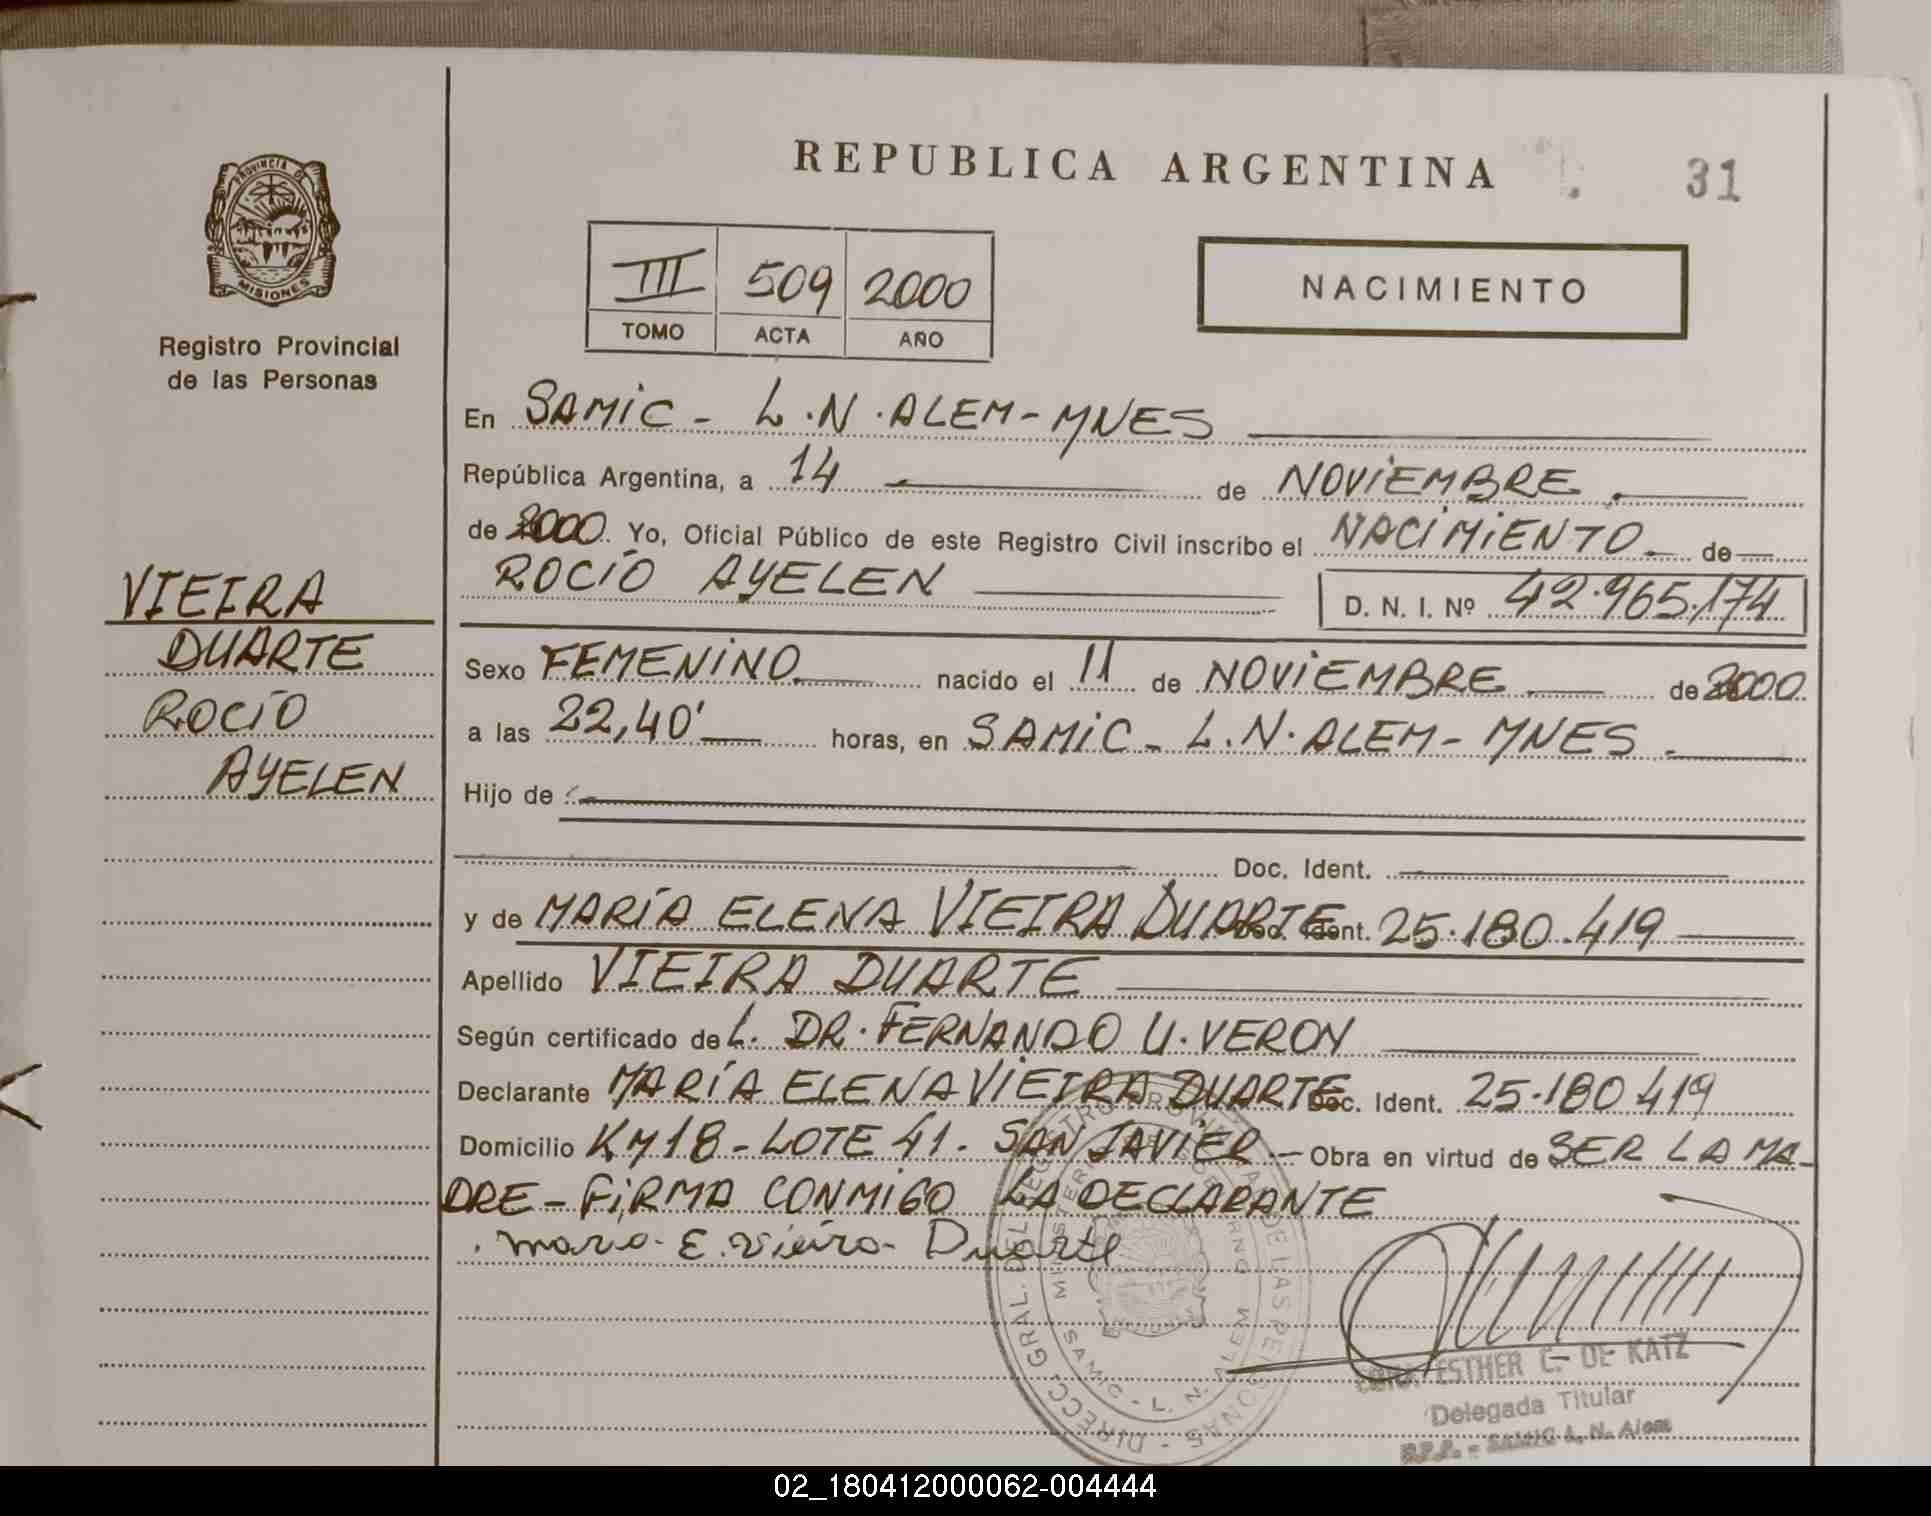 REPUBLICA ARGENTINA
31
PROVINCIA DE
MISIONES
Registro Provincial
de las Personas
III 509 2000
TOMO ACTA AÑO
NACIMIENTO
VIEIRA
DUARTE
ROCÍO
AYELEN
En SAMIC - L.N. ALEM - MNES
República Argentina, a 14 de NOVIEMBRE
de 2000. Yo, Oficial Público de este Registro Civil inscribo el NACIMIENTO de
ROCÍO AYELEN D. N. I. Nº 42.965.174
Sexo FEMENINO nacido el 11 de NOVIEMBRE de 2000
a las 22,40' horas, en SAMIC - L.N. ALEM - MNES.
Hijo de
Doc. Ident.
y de MARÍA ELENA VIEIRA DUARTE Doc. Ident. 25.180.419
Apellido VIEIRA DUARTE
Según certificado de L. DR. FERNANDO U. VERON
Declarante MARÍA ELENA VIEIRA DUARTE Doc. Ident. 25.180.419
Domicilio KM 18 - LOTE 41. SAN JAVIER - Obra en virtud de SER LA MA-
DRE - FIRMA CONMIGO LA DECLARANTE
Maria E. Vieira Duarte
DIRECC. GRAL. DEL REGISTRO PROVINCIAL DE LAS PERSONAS
SAMIC - L. N. ALEM
ESTHER C. DE KATZ
Delegada Titular
R.P.P. - SAMIC L. N. Alem
02_180412000062-004444